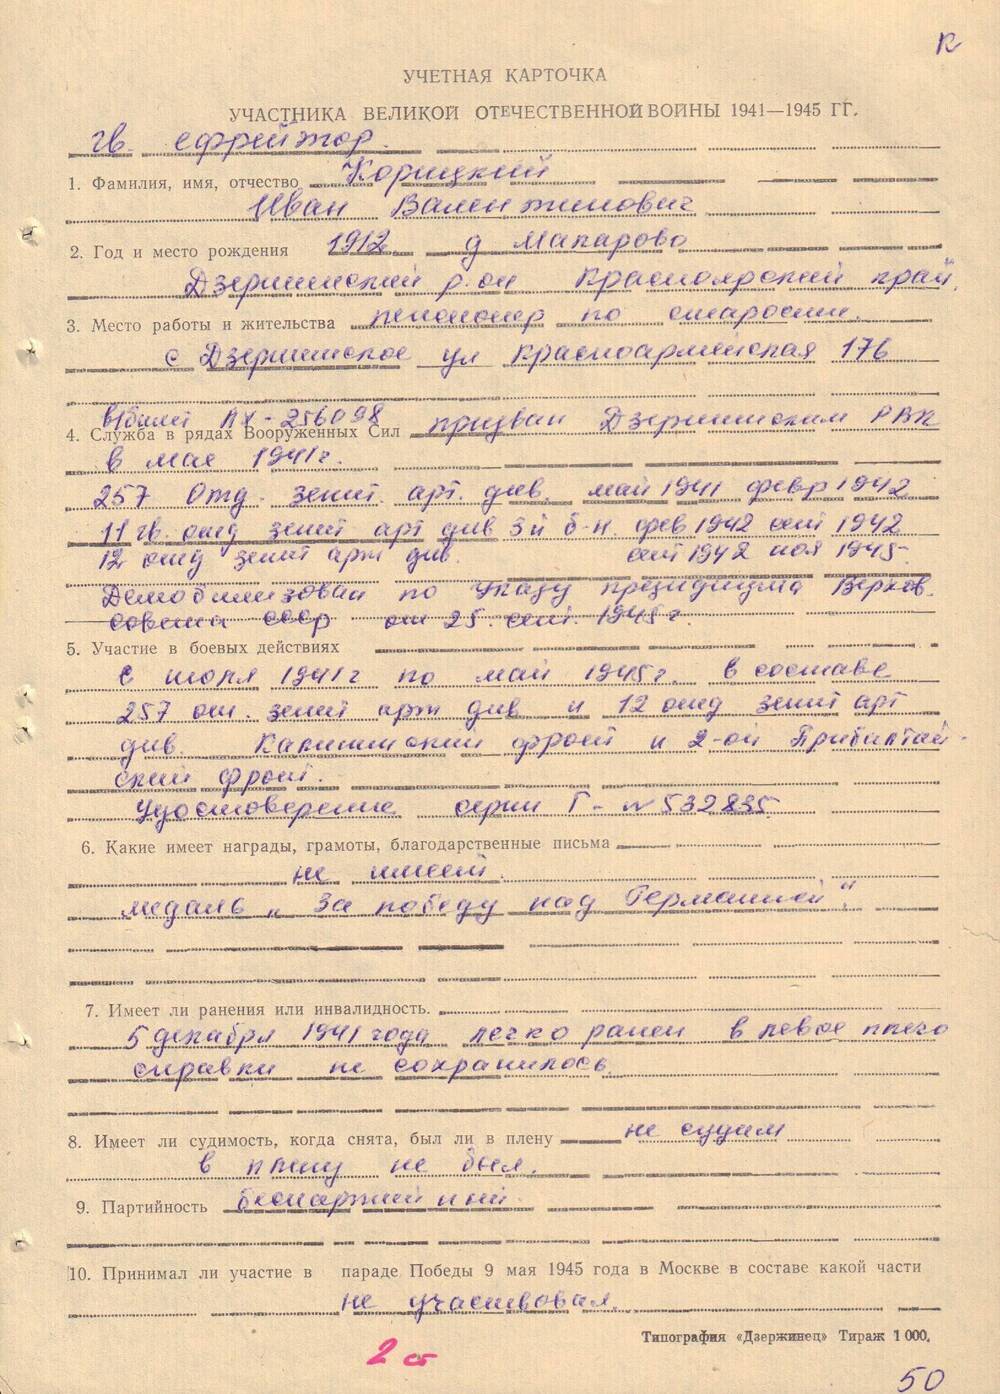 К
УЧЕТНАЯ КАРТОЧКА
УЧАСТНИКА ВЕЛИКОЙ ОТЕЧЕСТВЕННОЙ ВОЙНЫ 1941—1945 ГГ.
гв. ефрейтор.
1. Фамилия, имя, отчество Корицкий
Иван Валентинович
2. Год и место рождения 1912 д Макарово
Дзержинский р-он Красноярский край,
3. Место работы и жительства пенсионер по старости.
с Дзержинское ул Красноармейская 176
в/билет НХ-256098
4. Служба в рядах Вооруженных Сил призван Дзержинским РВК
в мае 1941г.
257 отд. зенит. арт. див. май 1941 февр 1942
11 гв. отд зенит арт див 3й б-н. фев 1942 сент 1942
12 отд зенит арт див. сент 1942 ноя 1945.
Демобилизован по Указу президиума Верхов.
совета СССР от 25. сент. 1945г.
5. Участие в боевых действиях
с июля 1941г по май 1945г. в составе
257 от. зенит арт див и 12 отд зенит арт
див. Калининский фронт и 2-ой Прибалтай-
ский фронт.
Удостоверение серии Г- № 532835
6. Какие имеет награды, грамоты, благодарственные письма
не имеет.
медаль „За победу над Германией".
7. Имеет ли ранения или инвалидность.
5 декабря 1941 года легко ранен в левое плечо
справки не сохранилось.
8. Имеет ли судимость, когда снята, был ли в плену не судим
в плену не был.
9. Партийность беспартийный.
10. Принимал ли участие в параде Победы 9 мая 1945 года в Москве в составе какой части
не участвовал.
Типография «Дзержинец» Тираж 1 000.
2 ст
50